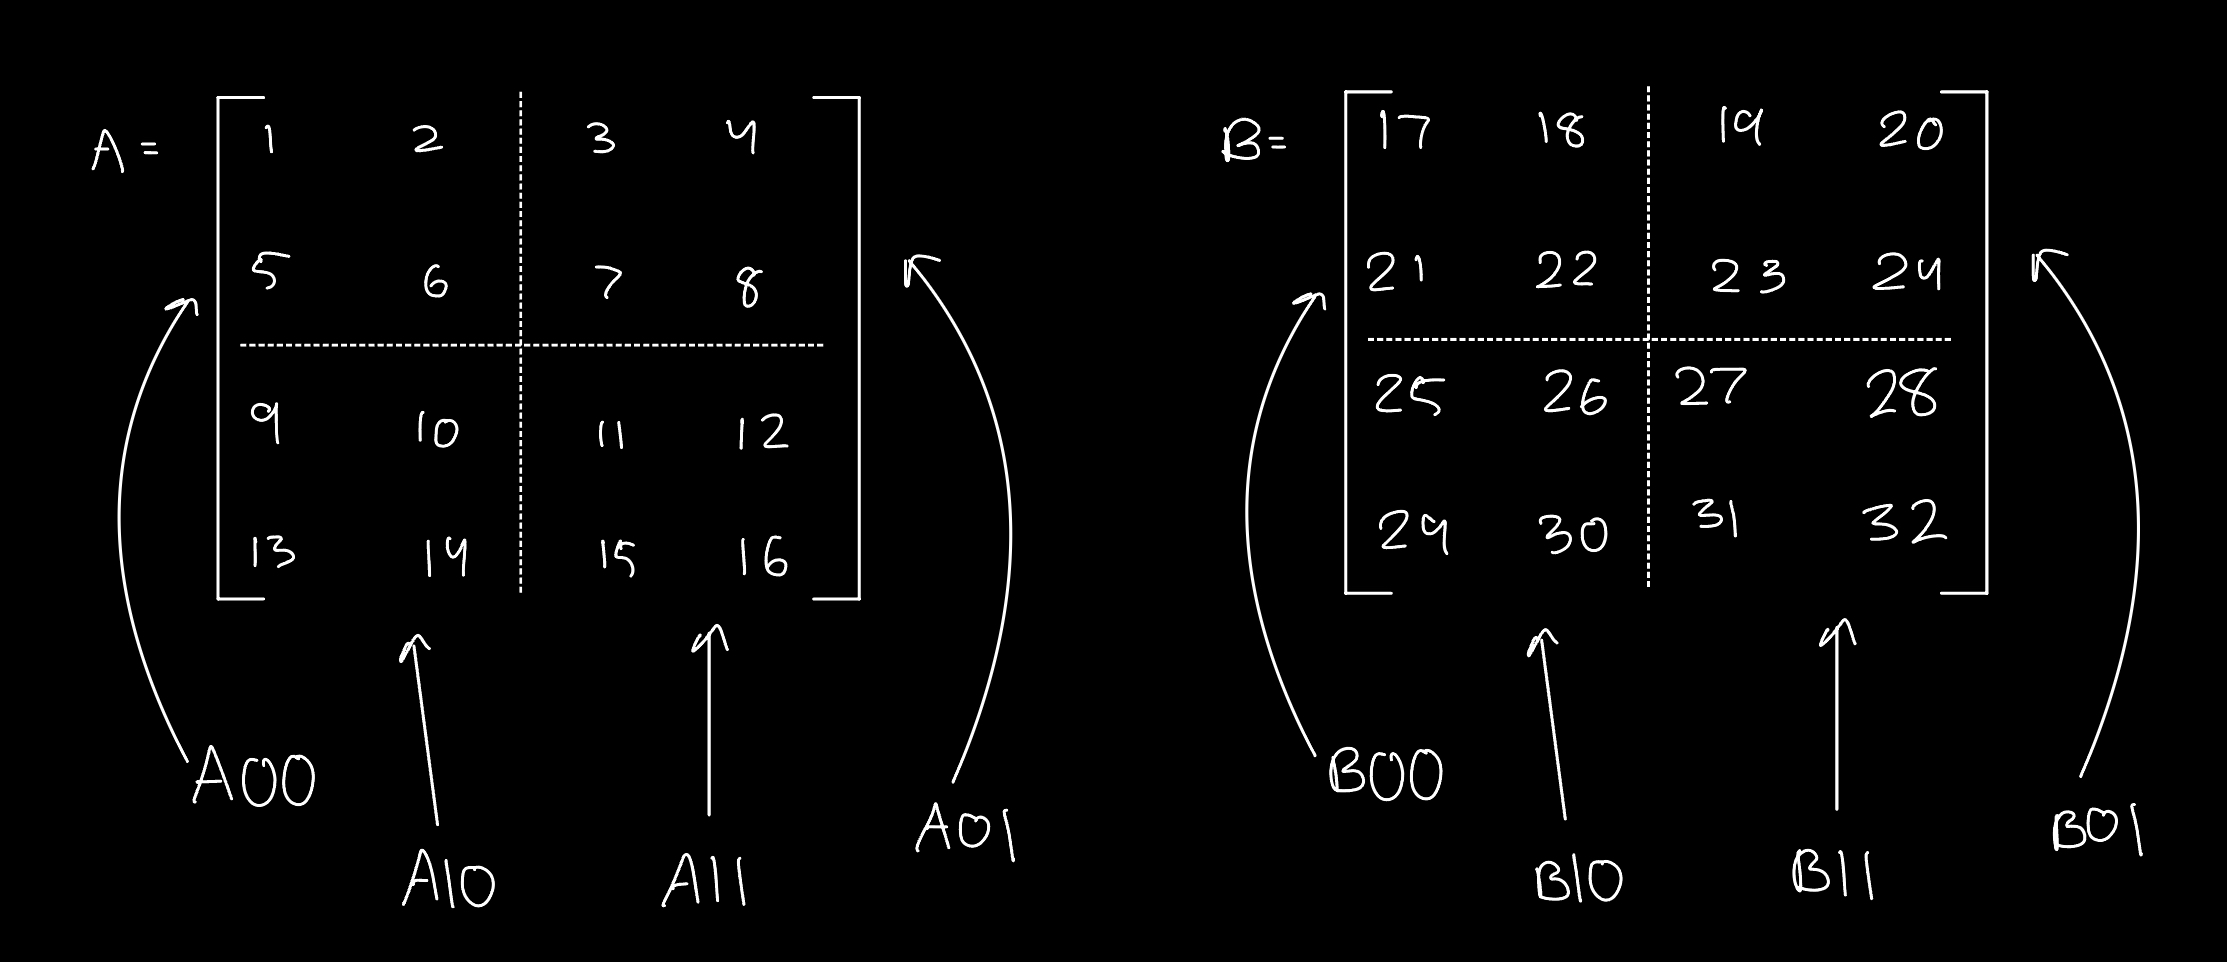 A = 1 2 3 4
5 6 7 8
9 10 11 12
13 14 15 16
A00
A10
A11
A01
B = 17 18 19 20
21 22 23 24
25 26 27 28
29 30 31 32
B00
B10
B11
B01